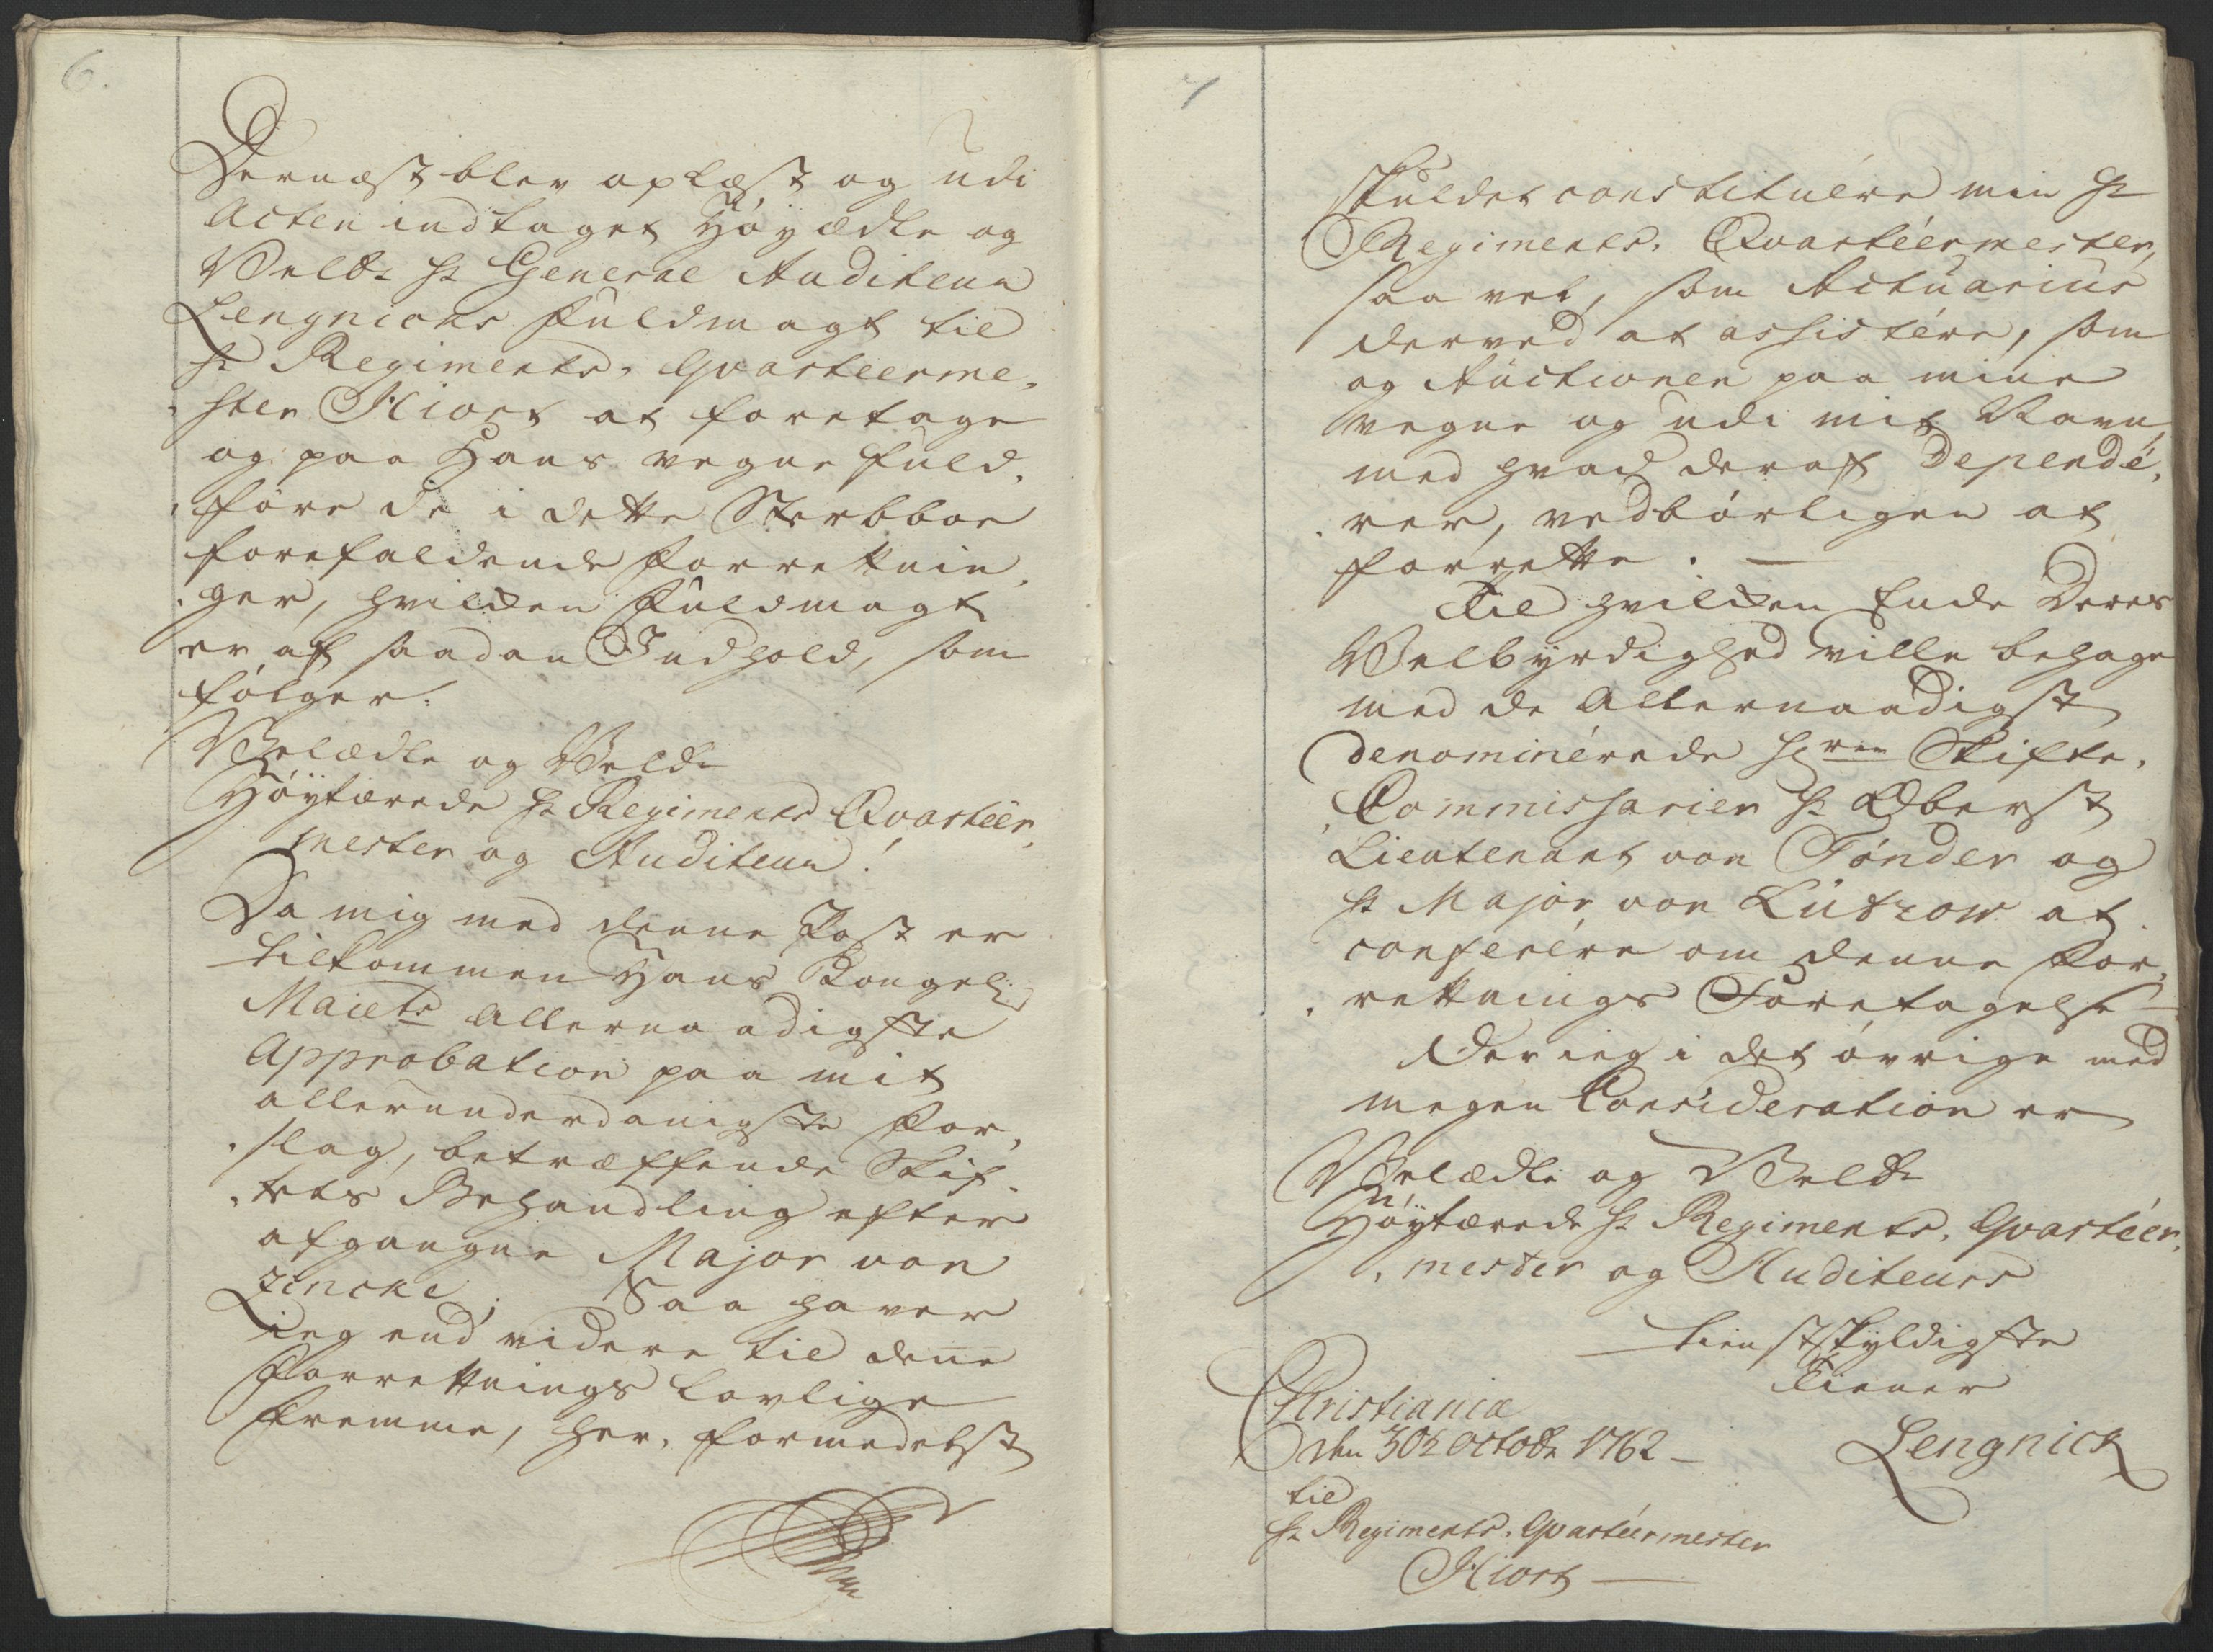 6.
Dernæst blev oplæst og udi
Acten indtaget Høyædle og
Velb: Hr General Auditeur
Lengnicks Fuldmagt til
Hr Regiments-Qvarteerme-
ster Hiort at foretage
og paa Hans vegne fuld-
føre de i dette Sterbboe
forefaldende Forretnin-
ger, hvilken Fuldmagt
er af saadan Indhold, som
følger.
Velædle og Velb:
Høytærede Hr Regiments Qvarteer-
mester og Auditeur!
Da mig med denne Post er
tilkommen Hans Kongel:
Maiets Allernaadigste
Approbation paa mit
allerunderdanigste For-
slag, betræffende Skif-
tets Behandling efter
afgangne Major von
Zincke; Saa haver
ieg end videre til dene
Forretnings lovlige
Fremme, her, formedelst
7
skuldet constituére min Hr
Regiments-Qvartéermester,
saa vel, som Actuarius
derved at assistére, som
og Auctionen paa mine
vegne og udi mit Navn,
med hvad deraf dependé-
rer, vedbørligen at
forrette. —
Til hvilken Ende Deres
Velbyrdighed ville behage
med de Allernaadigst
denominérede Hrrer Skifte-
Commissarier Hr Oberst
Lieutenant von Tønder og
Hr Major von Lützow at
conferére om denne For-
retnings Foretagelse —
Der ieg i det øvrige med
megen Consideration er
Velædle og Velb:
Høytærede Hr Regiments-Qvartéer-
mester og Auditeurs
tienstskyldigste
Tiener
Christiania
den 30te Octobr 1762 —
Lengnick
til
Hr Regiments-Qvartéermester
Hiort —